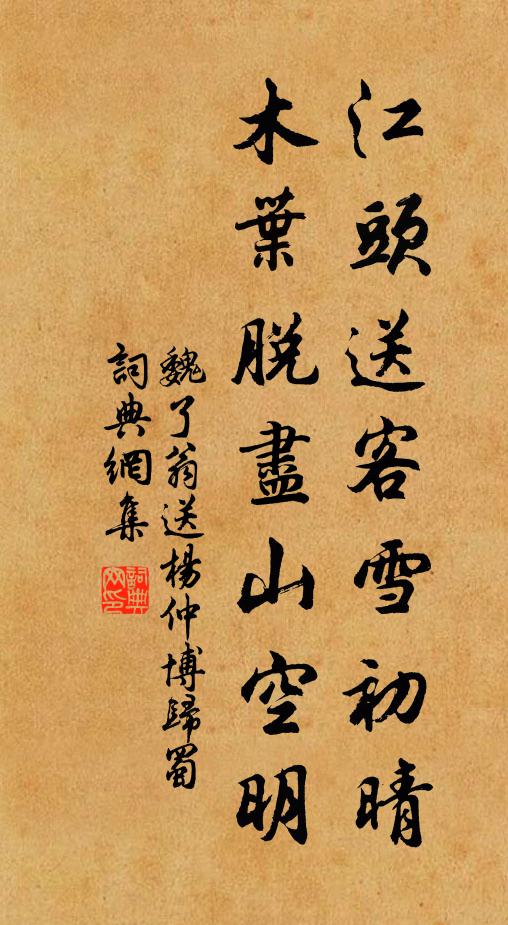 江頭送客雪初晴
木葉脫盡山空明
魏了翁送楊仲博歸蜀
詞典網集
詞典
网印